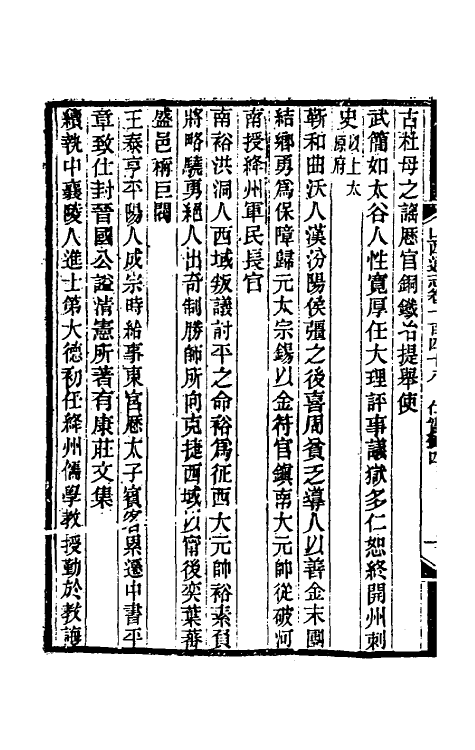 古杜母之謠歷官銅鐵冶提舉使
武簡如太谷人性寬厚任大理評事議獄多仁恕終開州刺
史以上太原府
靳和曲沃人漢汾陽侯彊之後喜周貧乏導人以善金末團
結鄉勇爲保障歸元太宗錫以金符官鎮南大元帥從破河
南授絳州軍民長官
南裕洪洞人西域叛議討平之命裕爲征西大元帥裕素負
將略驍勇絕人出奇制勝師所向克捷西域以甯後奕葉蕃
盛邑稱巨閥
王泰亨平陽人成宗時給事東宮歷太子賓客累遷中書平
章致仕封晉國公諡清憲所著有康莊文集
續執中襄陵人進士第大德初任絳州儒學教授勤於教誨
山西通志卷一百四十八 仕實錄四